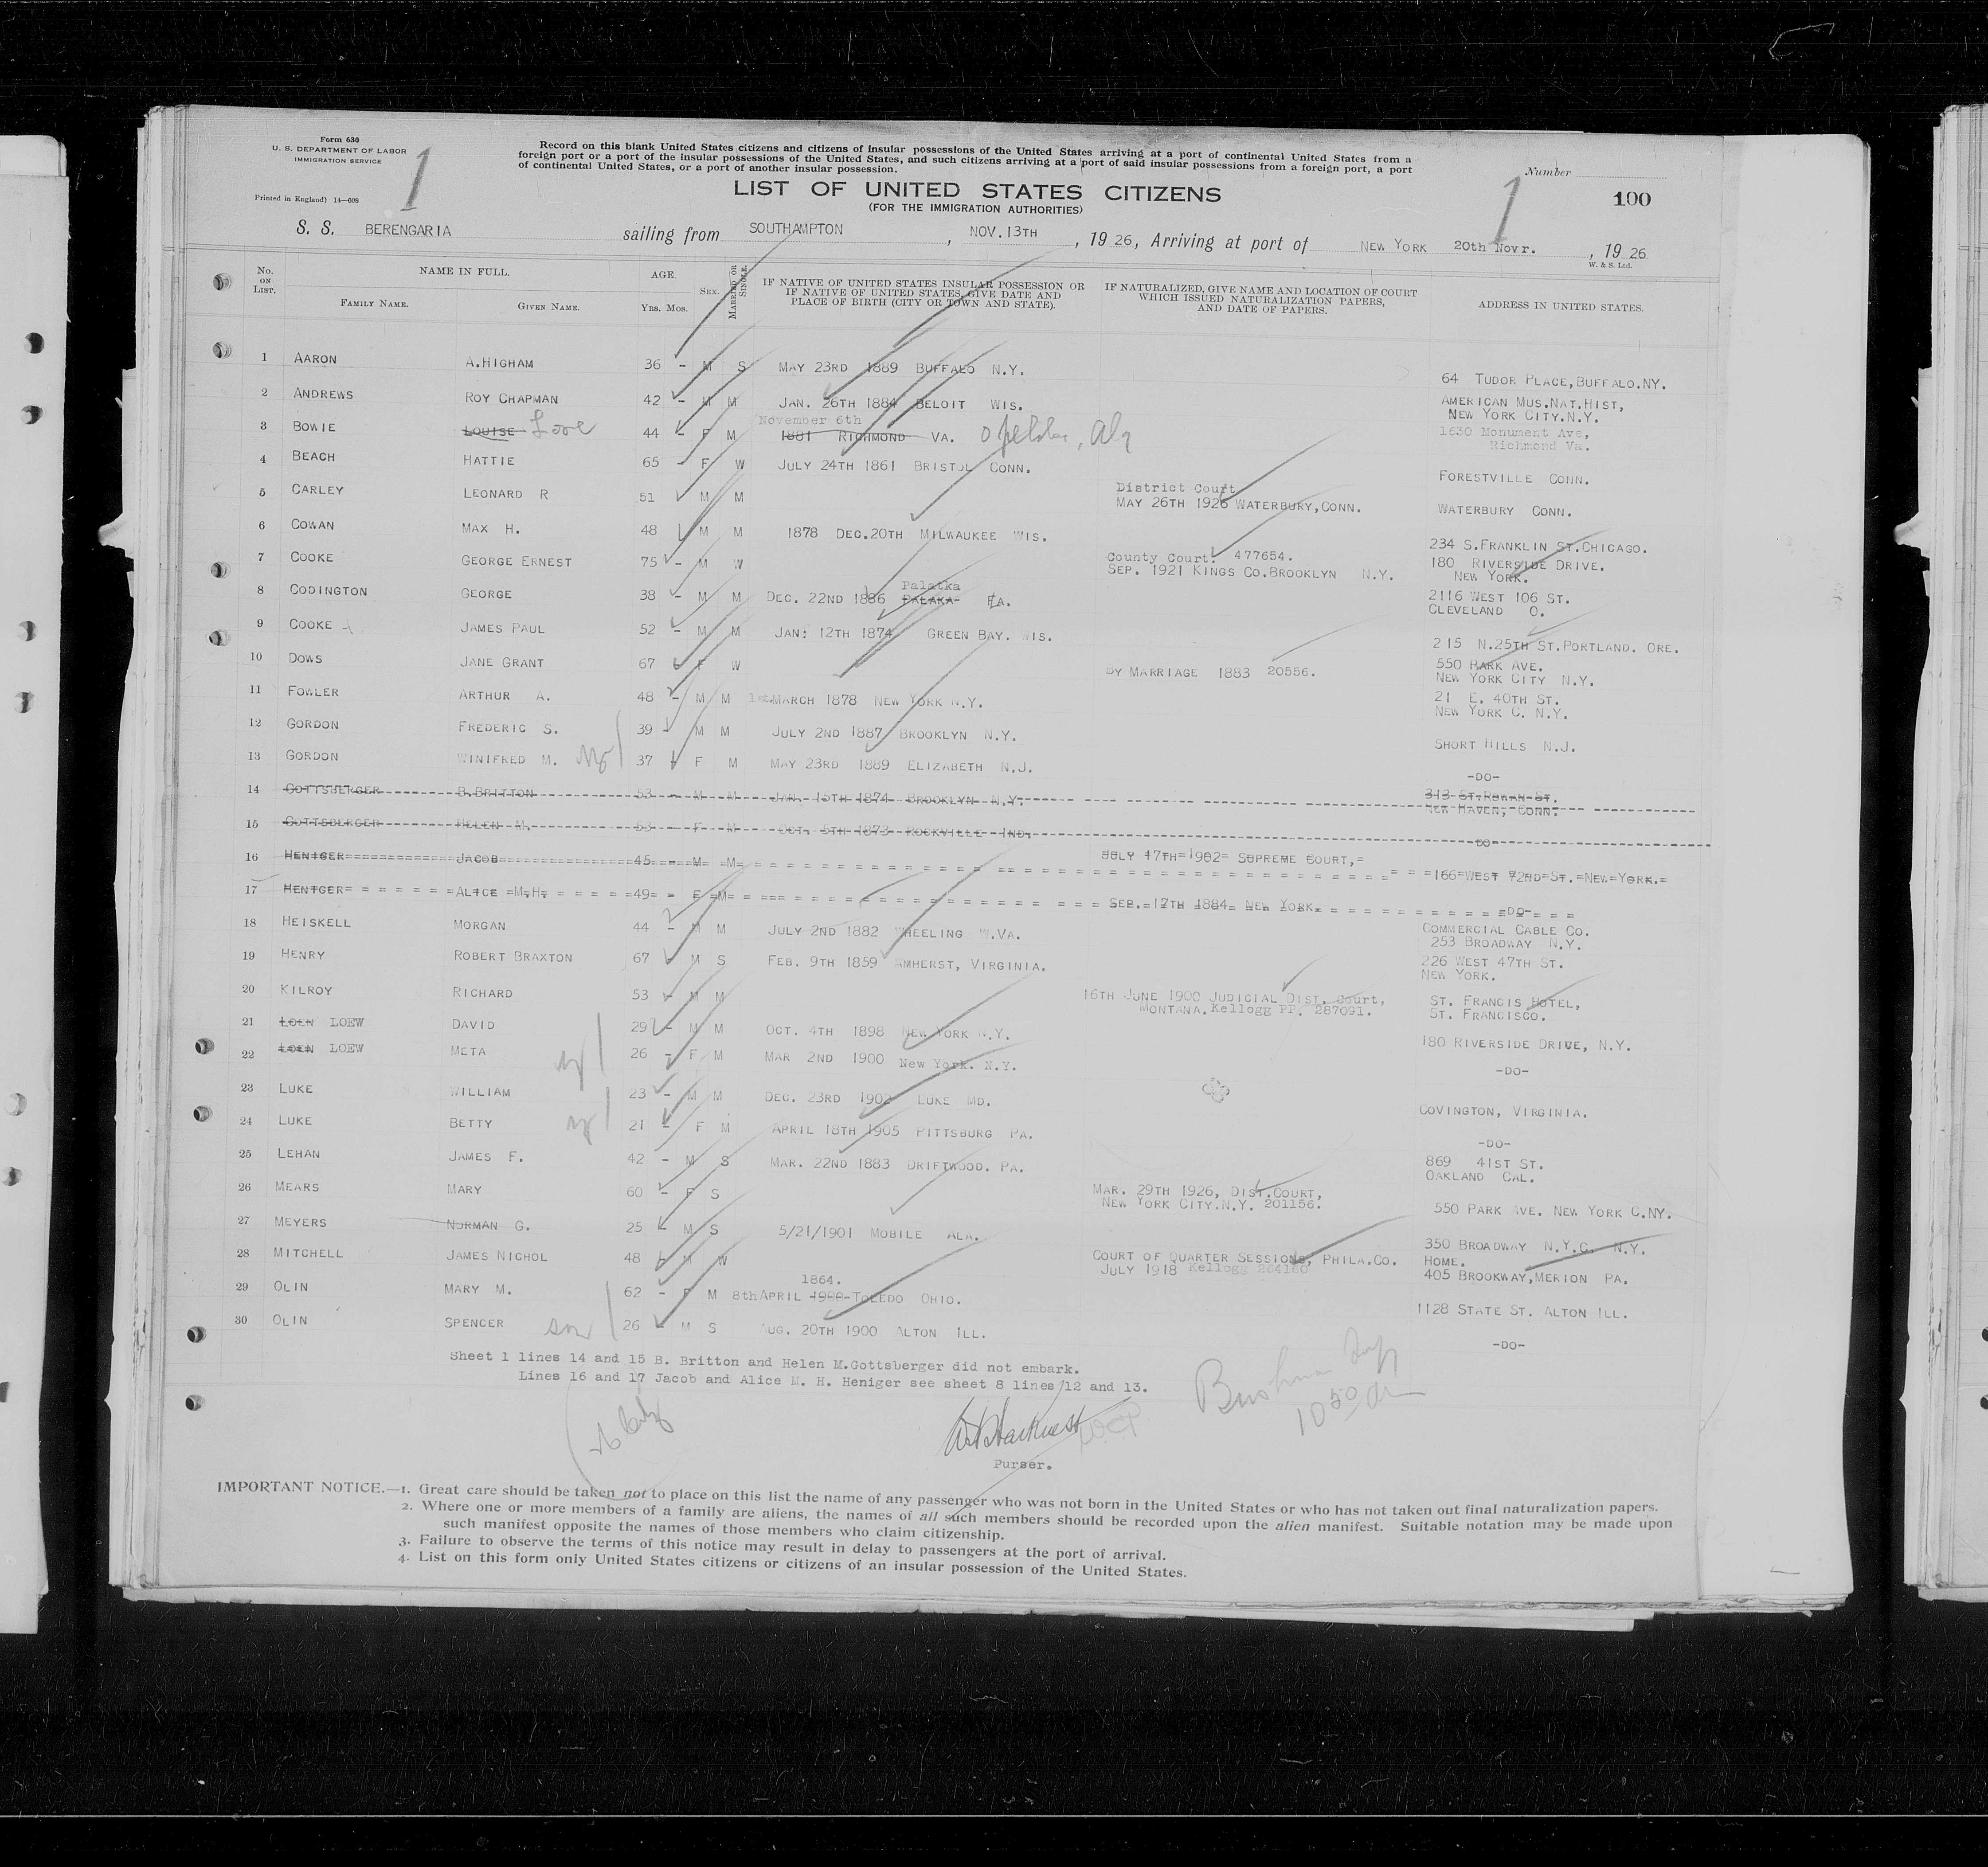 Form 630
U. S. DEPARTMENT OF LABOR
IMMIGRATION SERVICE
Printed in England) 14—608
1
Record on this blank United States citizens and citizens of insular possessions of the United States arriving at a port of continental United States from a
foreign port or a port of the insular possessions of the United States, and such citizens arriving at a port of said insular possessions from a foreign port, a port
of continental United States, or a port of another insular possession.
LIST OF UNITED STATES CITIZENS
(FOR THE IMMIGRATION AUTHORITIES)
Number
1
100
S. S. BERENGARIA sailing from SOUTHAMPTON, NOV. 13TH, 1926, Arriving at port of NEW YORK 20th Novr., 1926
W. & S. Ltd.
No. ON LIST. NAME IN FULL. FAMILY NAME. GIVEN NAME. AGE. YRS. MOS. SEX. MARRIED OR SINGLE.
IF NATIVE OF UNITED STATES INSULAR POSSESSION OR
IF NATIVE OF UNITED STATES, GIVE DATE AND
PLACE OF BIRTH (CITY OR TOWN AND STATE).
IF NATURALIZED, GIVE NAME AND LOCATION OF COURT
WHICH ISSUED NATURALIZATION PAPERS,
AND DATE OF PAPERS.
ADDRESS IN UNITED STATES.
1 AARON A.HIGHAM 36 - M S MAY 23RD 1889 BUFFALO N.Y. 64 TUDOR PLACE,BUFFALO.NY.
2 ANDREWS ROY CHAPMAN 42 - M M JAN. 26TH 1884 BELOIT WIS. AMERICAN MUS.NAT.HIST,
NEW YORK CITY.N.Y.
3 BOWIE LOUISE 44 - F M November 6th 1881 RICHMOND VA. Ala 1630 Monument Ave,
Richmond Va.
4 BEACH HATTIE 65 - F W JULY 24TH 1861 BRISTOL CONN. FORESTVILLE CONN.
5 CARLEY LEONARD R 51 M M District Court
MAY 26TH 1926 WATERBURY,CONN. WATERBURY CONN.
6 COWAN MAX H. 48 M M 1878 DEC.20TH MILWAUKEE WIS. 234 S.FRANKLIN ST.CHICAGO.
7 COOKE GEORGE ERNEST 75 - M W County Court. 477654.
SEP. 1921 KINGS CO.BROOKLYN N.Y. 180 RIVERSIDE DRIVE.
NEW YORK.
8 CODINGTON GEORGE 38 - M M DEC. 22ND 1886 PALAKA Palatka FA. 2116 WEST 106 ST.
CLEVELAND O.
9 COOKE JAMES PAUL 52 - M M JAN: 12TH 1874 GREEN BAY. WIS. 215 N.25TH ST.PORTLAND. ORE.
10 DOWS JANE GRANT 67 - F W BY MARRIAGE 1883 20556. 550 PARK AVE.
NEW YORK CITY N.Y.
11 FOWLER ARTHUR A. 48 - M M 1st MARCH 1878 NEW YORK N.Y. 21 E. 40TH ST.
NEW YORK C. N.Y.
12 GORDON FREDERIC S. 39 - M M JULY 2ND 1887 BROOKLYN N.Y. SHORT HILLS N.J.
13 GORDON WINIFRED M. 37 - F M MAY 23RD 1889 ELIZABETH N.J. -DO-
14 GOTTSBERGER B.BRITTON 53 - M M JAN. 15TH 1874 BROOKLYN N.Y. 313 ST.RONAN ST.
NEW HAVEN, CONN.
15 GOTTSBERGER HELEN M. 53 - F M OCT. 5TH 1873 ROCKVILLE IND. -DO-
16 HENIGER JACOB 45 - M M JULY 17TH 1902 SUPREME COURT, 166 WEST 72ND ST. NEW YORK.
17 HENIGER ALICE M.H. 49 - F M SEP. 17TH 1884 NEW YORK. -DO-
18 HEISKELL MORGAN 44 - M M JULY 2ND 1882 WHEELING W.VA. COMMERCIAL CABLE CO.
253 BROADWAY N.Y.
19 HENRY ROBERT BRAXTON 67 M S FEB. 9TH 1859 AMHERST, VIRGINIA. 226 WEST 47TH ST.
NEW YORK.
20 KILROY RICHARD 53 - M M 16TH JUNE 1900 JUDICIAL DIST. Court,
MONTANA. Kellogg PP. 287091. ST. FRANCIS HOTEL,
ST. FRANCISCO.
21 LOEN LOEW DAVID 29 - M M OCT. 4TH 1898 NEW YORK N.Y. 180 RIVERSIDE DRIVE, N.Y.
22 LOEN LOEW META 26 - F M MAR 2ND 1900 New York. N.Y. -DO-
23 LUKE WILLIAM 23 - M M DEC. 23RD 1902 LUKE MD. COVINGTON, VIRGINIA.
24 LUKE BETTY 21 - F M APRIL 18TH 1905 PITTSBURG PA. -DO-
25 LEHAN JAMES F. 42 - M S MAR. 22ND 1883 DRIFTWOOD. PA. 869 41ST ST.
OAKLAND CAL.
26 MEARS MARY 60 - F S MAR. 29TH 1926, DIST.COURT,
NEW YORK CITY.N.Y. 201156. 550 PARK AVE. NEW YORK C.NY.
27 MEYERS NORMAN G. 25 - M S 5/21/1901 MOBILE ALA. 350 BROADWAY N.Y.C. N.Y.
28 MITCHELL JAMES NICHOL 48 - M W COURT OF QUARTER SESSIONS, PHILA.CO.
JULY 1918 Kellogg HOME.
405 BROOKWAY,MERION PA.
29 OLIN MARY M. 62 - F M 8th APRIL 1900 1864. TOLEDO OHIO. 1128 STATE ST. ALTON ILL.
30 OLIN SPENCER son 26 - M S AUG. 20TH 1900 ALTON ILL. -DO-
Sheet 1 lines 14 and 15 B. Britton and Helen M.Gottsberger did not embark.
Lines 16 and 17 Jacob and Alice M. H. Heniger see sheet 8 lines 12 and 13.
Purser.
IMPORTANT NOTICE.—1. Great care should be taken not to place on this list the name of any passenger who was not born in the United States or who has not taken out final naturalization papers.
2. Where one or more members of a family are aliens, the names of all such members should be recorded upon the alien manifest. Suitable notation may be made upon
such manifest opposite the names of those members who claim citizenship.
3. Failure to observe the terms of this notice may result in delay to passengers at the port of arrival.
4. List on this form only United States citizens or citizens of an insular possession of the United States.